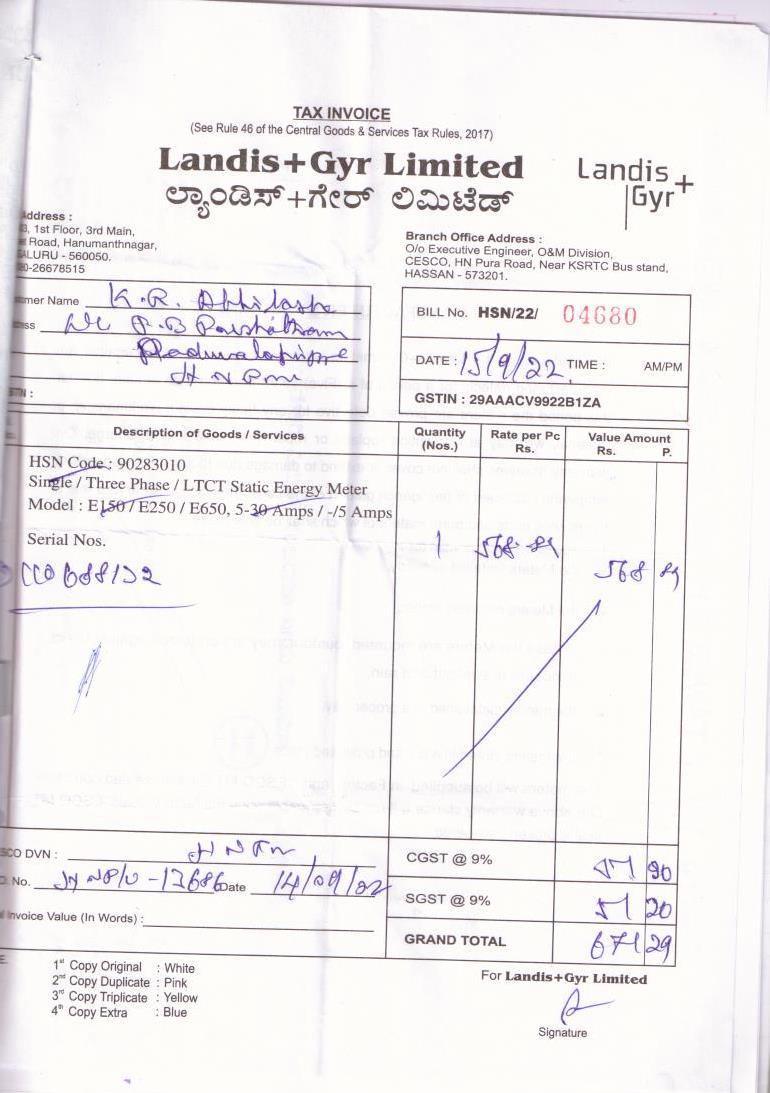 TAX INVOICE
(See Rule 46 of the Central Goods & Services Tax Rules, 2017)
Landis+Gyr Limited
Landis+
Gyr
ಲ್ಯಾಂಡಿಸ್+ಗೇರ್ ಲಿಮಿಟೆಡ್
Address :
1st Floor, 3rd Main,
Road, Hanumanthnagar,
ALURU - 560050.
-26678515
Branch Office Address :
O/o Executive Engineer, O&M Division,
CESCO, HN Pura Road, Near KSRTC Bus stand,
HASSAN - 573201.
omer Name K.R. Abhilasha
ess
H N Pura
BILL No. HSN/22/ 04680
DATE : 15/9/22 TIME : AM/PM
GSTIN : 29AAACV9922B1ZA
STIN :
Description of Goods / Services
Quantity (Nos.)
Rate per Pc Rs.
Value Amount Rs. P.
HSN Code : 90283010
Single / Three Phase / LTCT Static Energy Meter
Model : E150 / E250 / E650, 5-30 Amps / -/5 Amps
Serial Nos. 1 568
568
SCO DVN :
No. Date 14/09/22
Invoice Value (In Words) :
CGST @ 9%
SGST @ 9% 20
GRAND TOTAL 671 29
1st Copy Original : White
2nd Copy Duplicate : Pink
3rd Copy Triplicate : Yellow
4th Copy Extra : Blue
For Landis+Gyr Limited
Signature